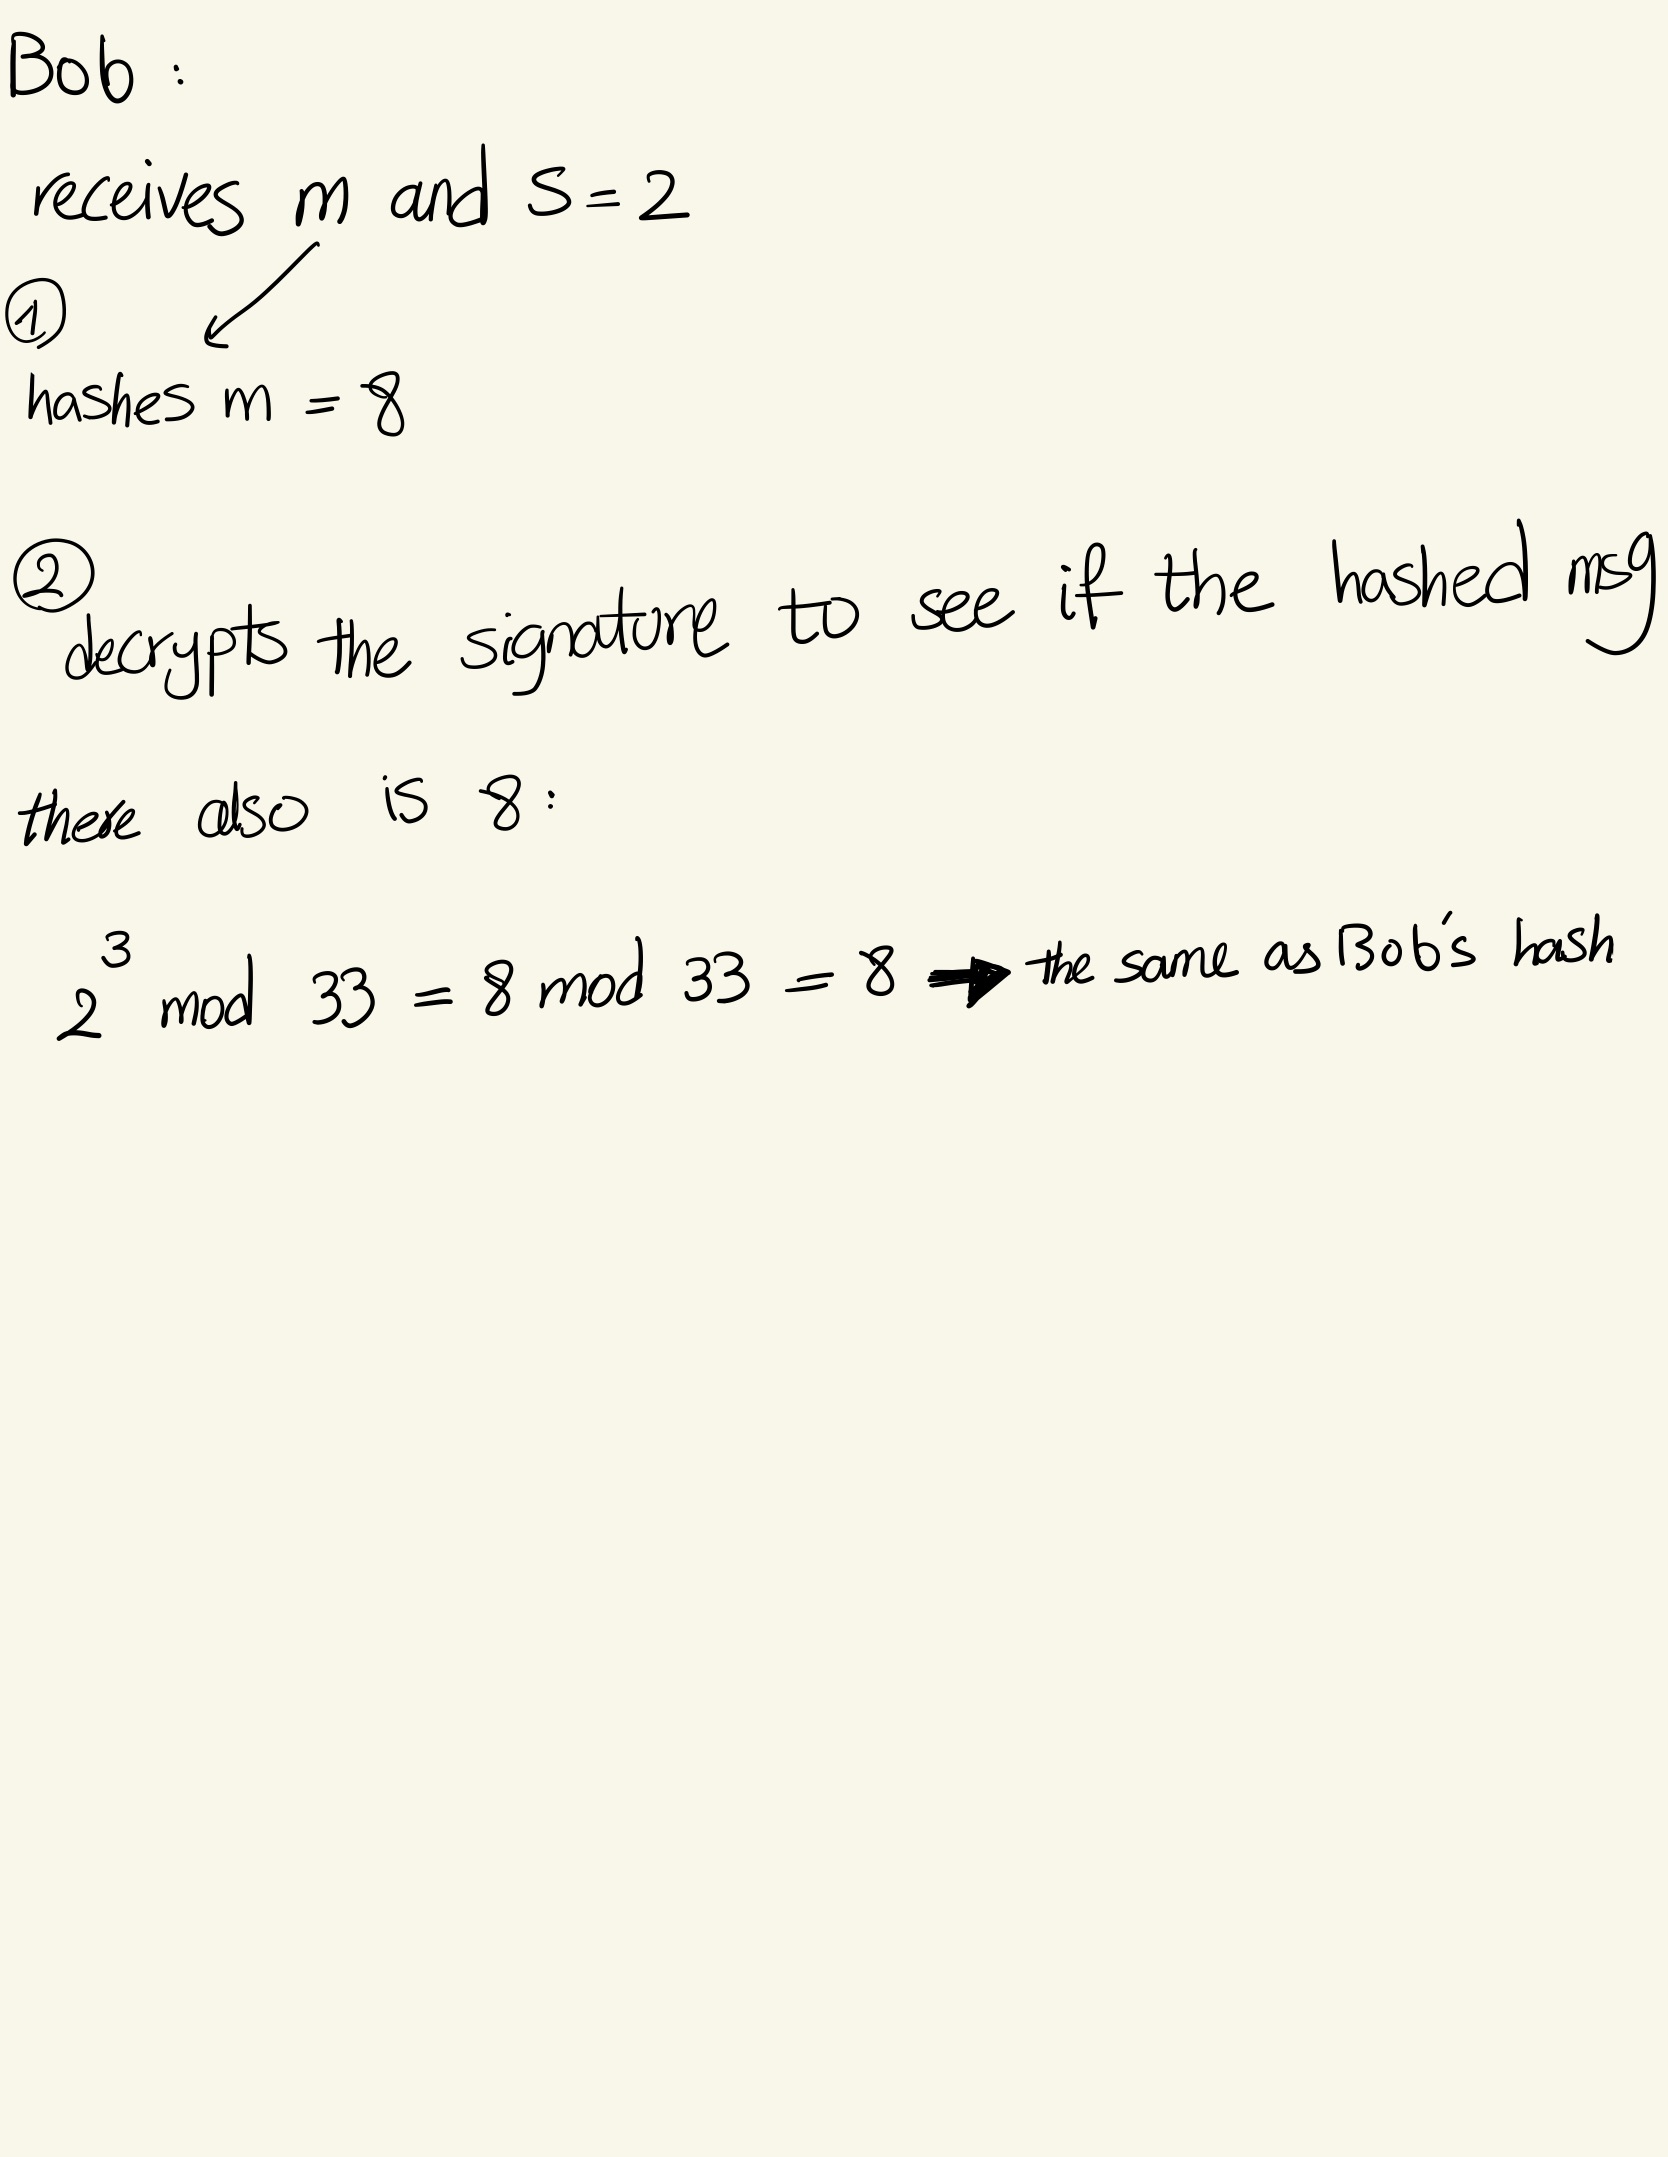 Bob :
receives m and S = 2
①
hashes m = 8
②
decrypts the signature to see if the hashed msg
there also is 8 :
2³ mod 33 = 8 mod 33 = 8 → the same as Bob's hash